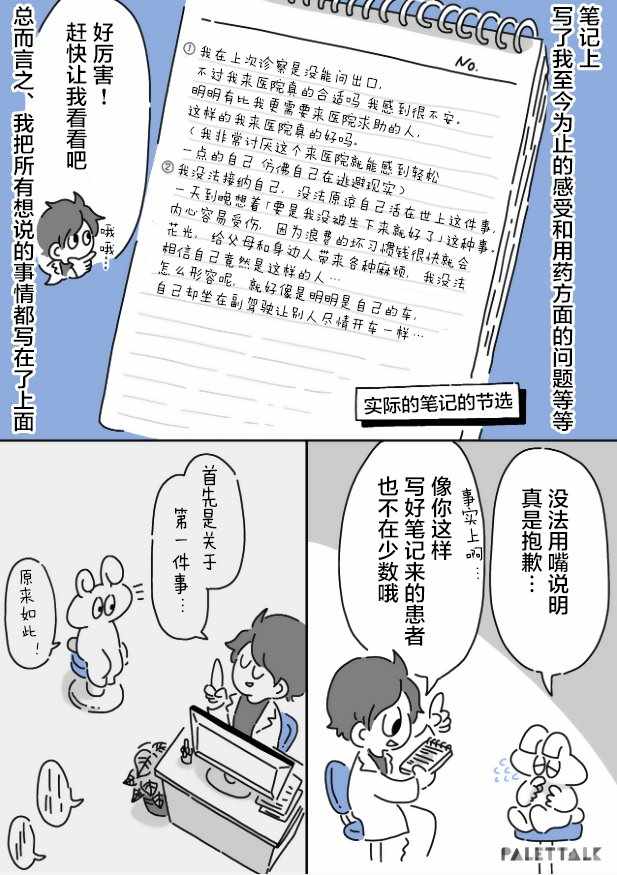 笔记上
写了我至今为止的感受和用药方面的问题等等
No.
①我在上次诊察是没能问出口,
不过我来医院真的合适吗 我感到很不安。
明明有比我更需要来医院求助的人,
这样的我来医院真的好吗。
(我非常讨厌这个来医院就能感到轻松
一点的自己 仿佛自己在逃避现实)
②我没法接纳自己, 没法原谅自己活在世上这件事,
一天到晚想着「要是我没被生下来就好了」这种事。
内心容易受伤, 因为浪费的坏习惯钱很快就会
花光, 给父母和身边人带来各种麻烦, 我没法
相信自己竟然是这样的人…
怎么形容呢, 就好像是明明是自己的车,
自己却坐在副驾驶让别人尽情开车一样…
实际的笔记的节选
好厉害!
赶快让我看看吧
哦
哦…
总而言之、我把所有想说的事情都写在了上面
没法用嘴说明
真是抱歉…
事实上啊…
像你这样
写好笔记来的患者
也不在少数哦
首先是关于
第一件事…
原来如此!
PALETTALK